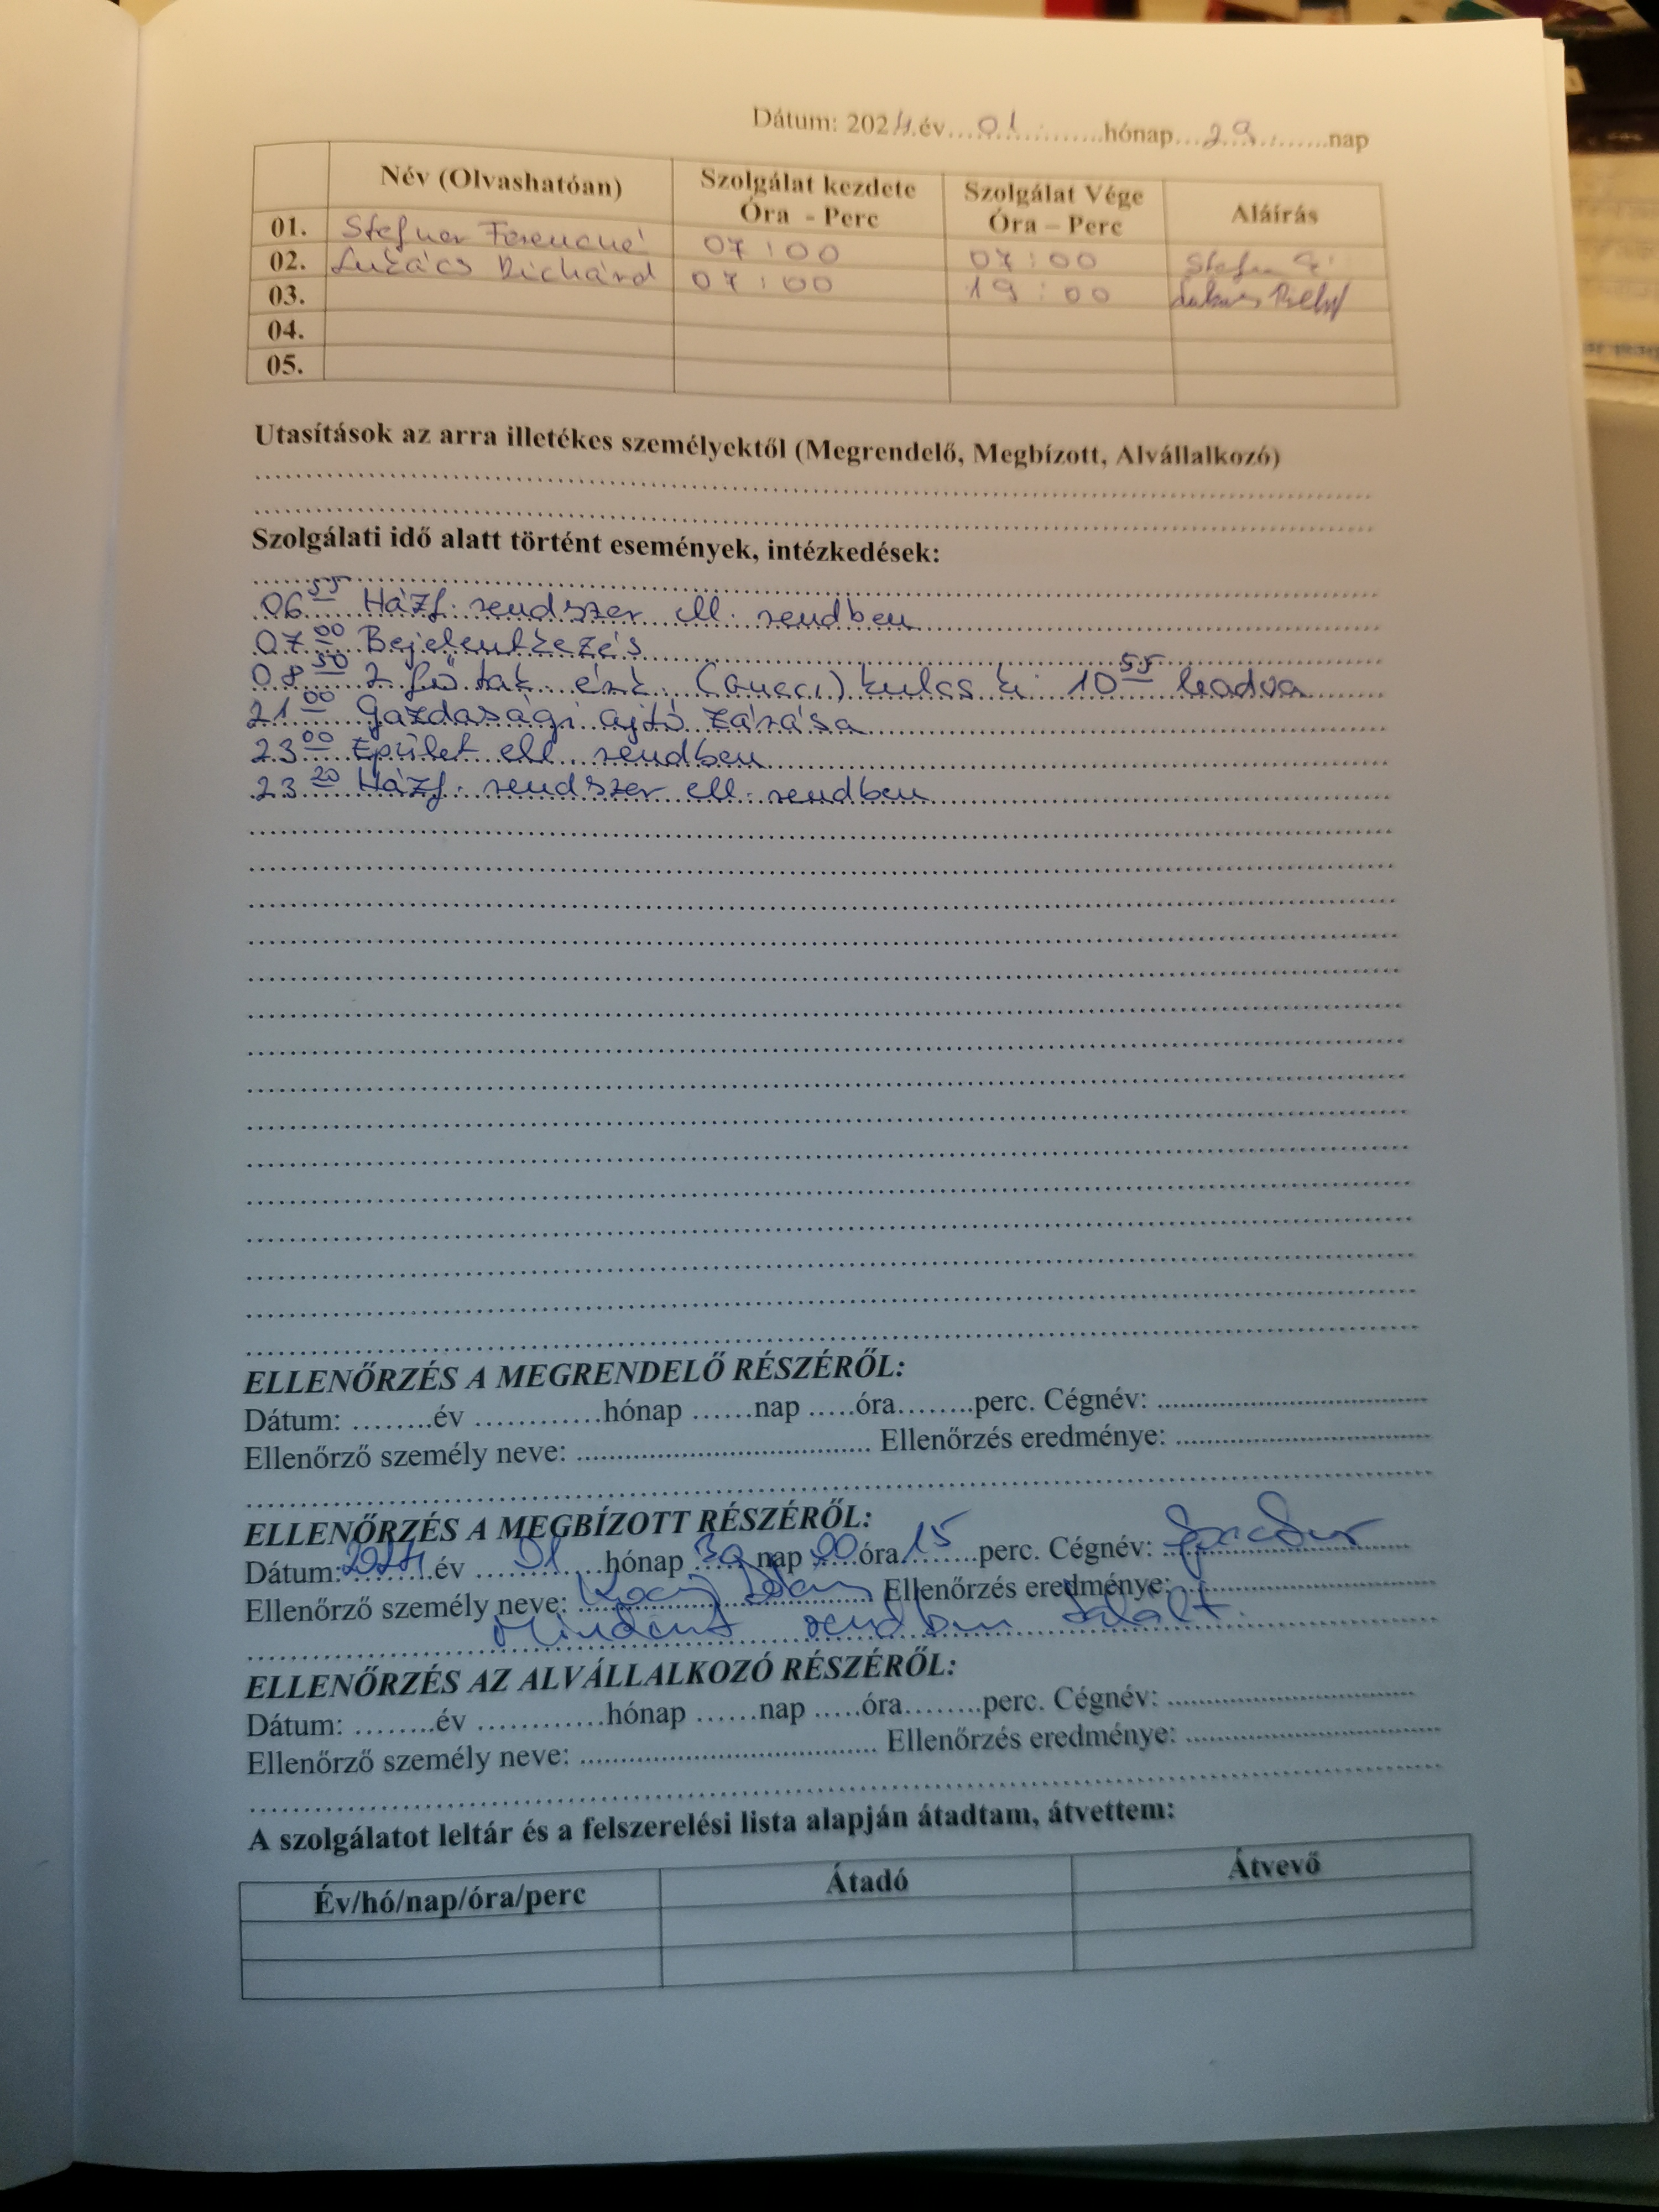 Dátum: 2024 év 01 hónap 29 nap
Név (Olvashatóan) Szolgálat kezdete Óra - Perc Szolgálat Vége Óra – Perc Aláírás
01. Stefner Ferencné 07:00 07:00
02. Lukács Richárd 07:00 19:00
03.
04.
05.
Utasítások az arra illetékes személyektől (Megrendelő, Megbízott, Alvállalkozó)
Szolgálati idő alatt történt események, intézkedések:
06 55 Házf. rendszer ell. rendben
07 00 Bejelentkezés
08 50 2 fő tak. érk. kulcs ki 10 55 leadva
21 00 Gazdasági ajtó zárása
23 00 Épület ell. rendben
23 20 Házf. rendszer ell. rendben
ELLENŐRZÉS A MEGRENDELŐ RÉSZÉRŐL:
Dátum: ........év ............hónap ......nap .....óra........perc. Cégnév: ..............................
Ellenőrző személy neve: .................................... Ellenőrzés eredménye: ..............................
ELLENŐRZÉS A MEGBÍZOTT RÉSZÉRŐL:
Dátum: 2024 év 01 hónap 30 nap 00 óra 15 perc. Cégnév:
Ellenőrző személy neve: Ellenőrzés eredménye:
Mindent rendben talált.
ELLENŐRZÉS AZ ALVÁLLALKOZÓ RÉSZÉRŐL:
Dátum: ........év ............hónap ......nap .....óra........perc. Cégnév: ..............................
Ellenőrző személy neve: .................................... Ellenőrzés eredménye: ..............................
A szolgálatot leltár és a felszerelési lista alapján átadtam, átvettem:
Év/hó/nap/óra/perc Átadó Átvevő